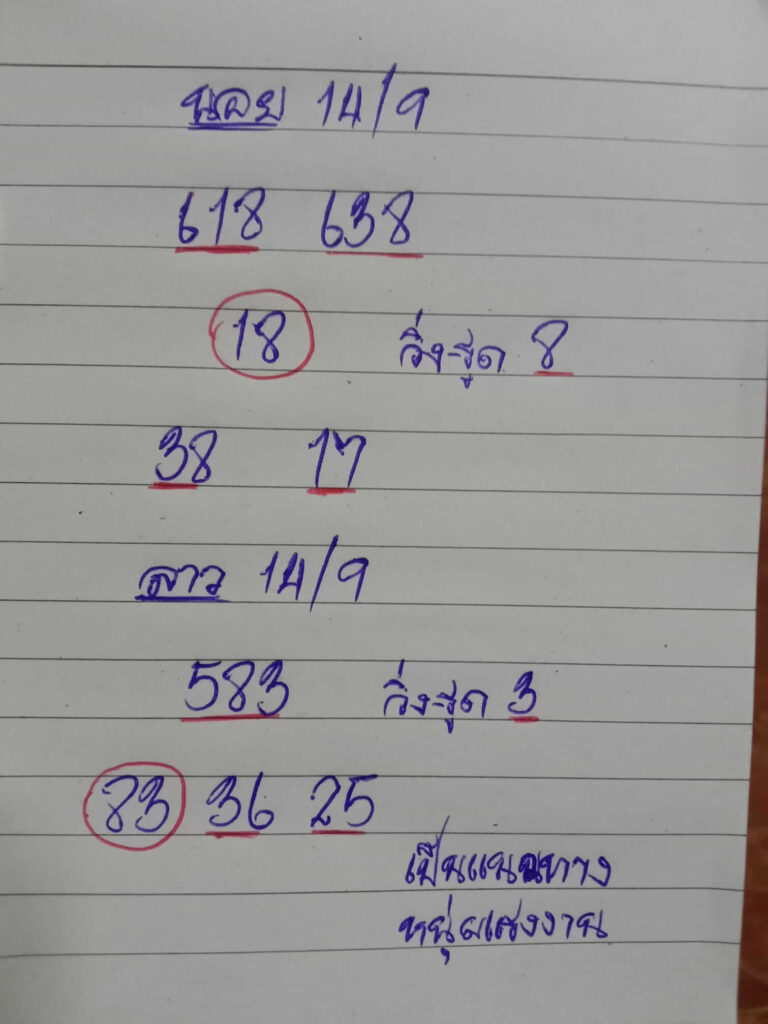 นอย 14/9
618 638
18 วิ่ง-รูด 8
38 17
ลาว 14/9
583 วิ่ง-รูด 3
83 36 25
เป็นแนวทาง
หนุ่มโรงงาน